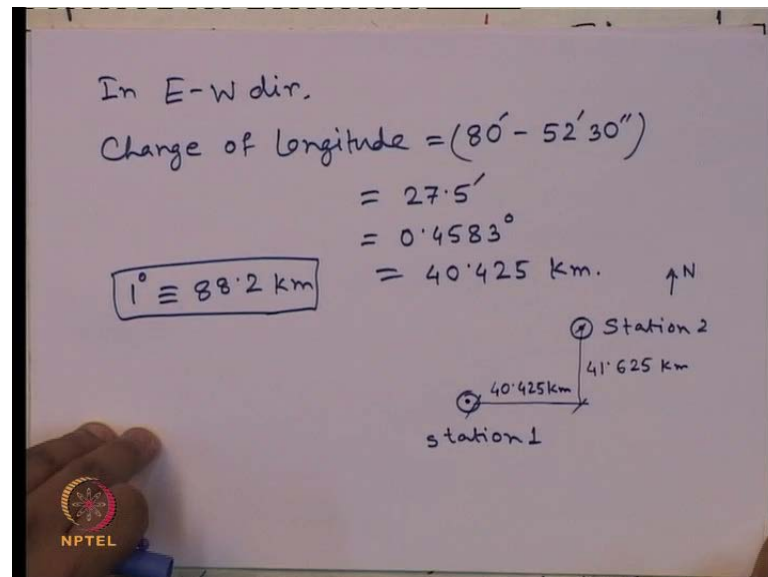 In E-W dir.
Change of Longitude = (80' - 52'30")
= 27.5'
= 0.4583°
1° ≡ 88.2 km
= 40.425 km.
↑N
Station 2
41.625 km
40.425km
station 1
NPTEL